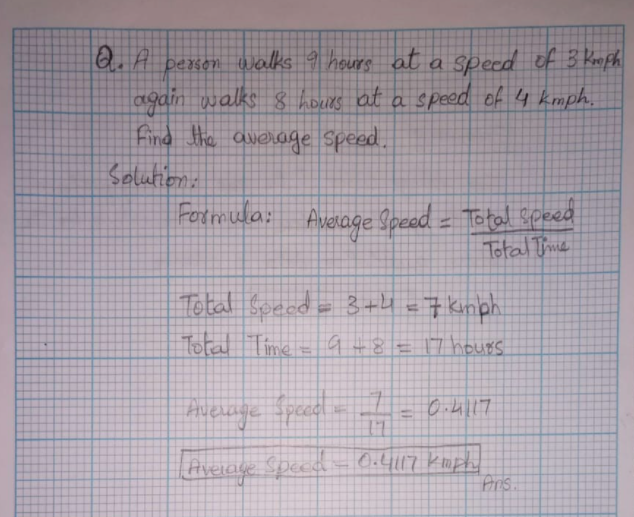 Q. A person walks 9 hours at a speed of 3 kmph
again walks 8 hours at a speed of 4 kmph.
Find the average speed.
Solution:
Formula: Average Speed = Total Speed / Total Time
Total Speed = 3+4 = 7 kmph
Total Time = 9 + 8 = 17 hours
Average Speed = 7/17 = 0.4117
Average Speed = 0.4117 kmph
Ans.